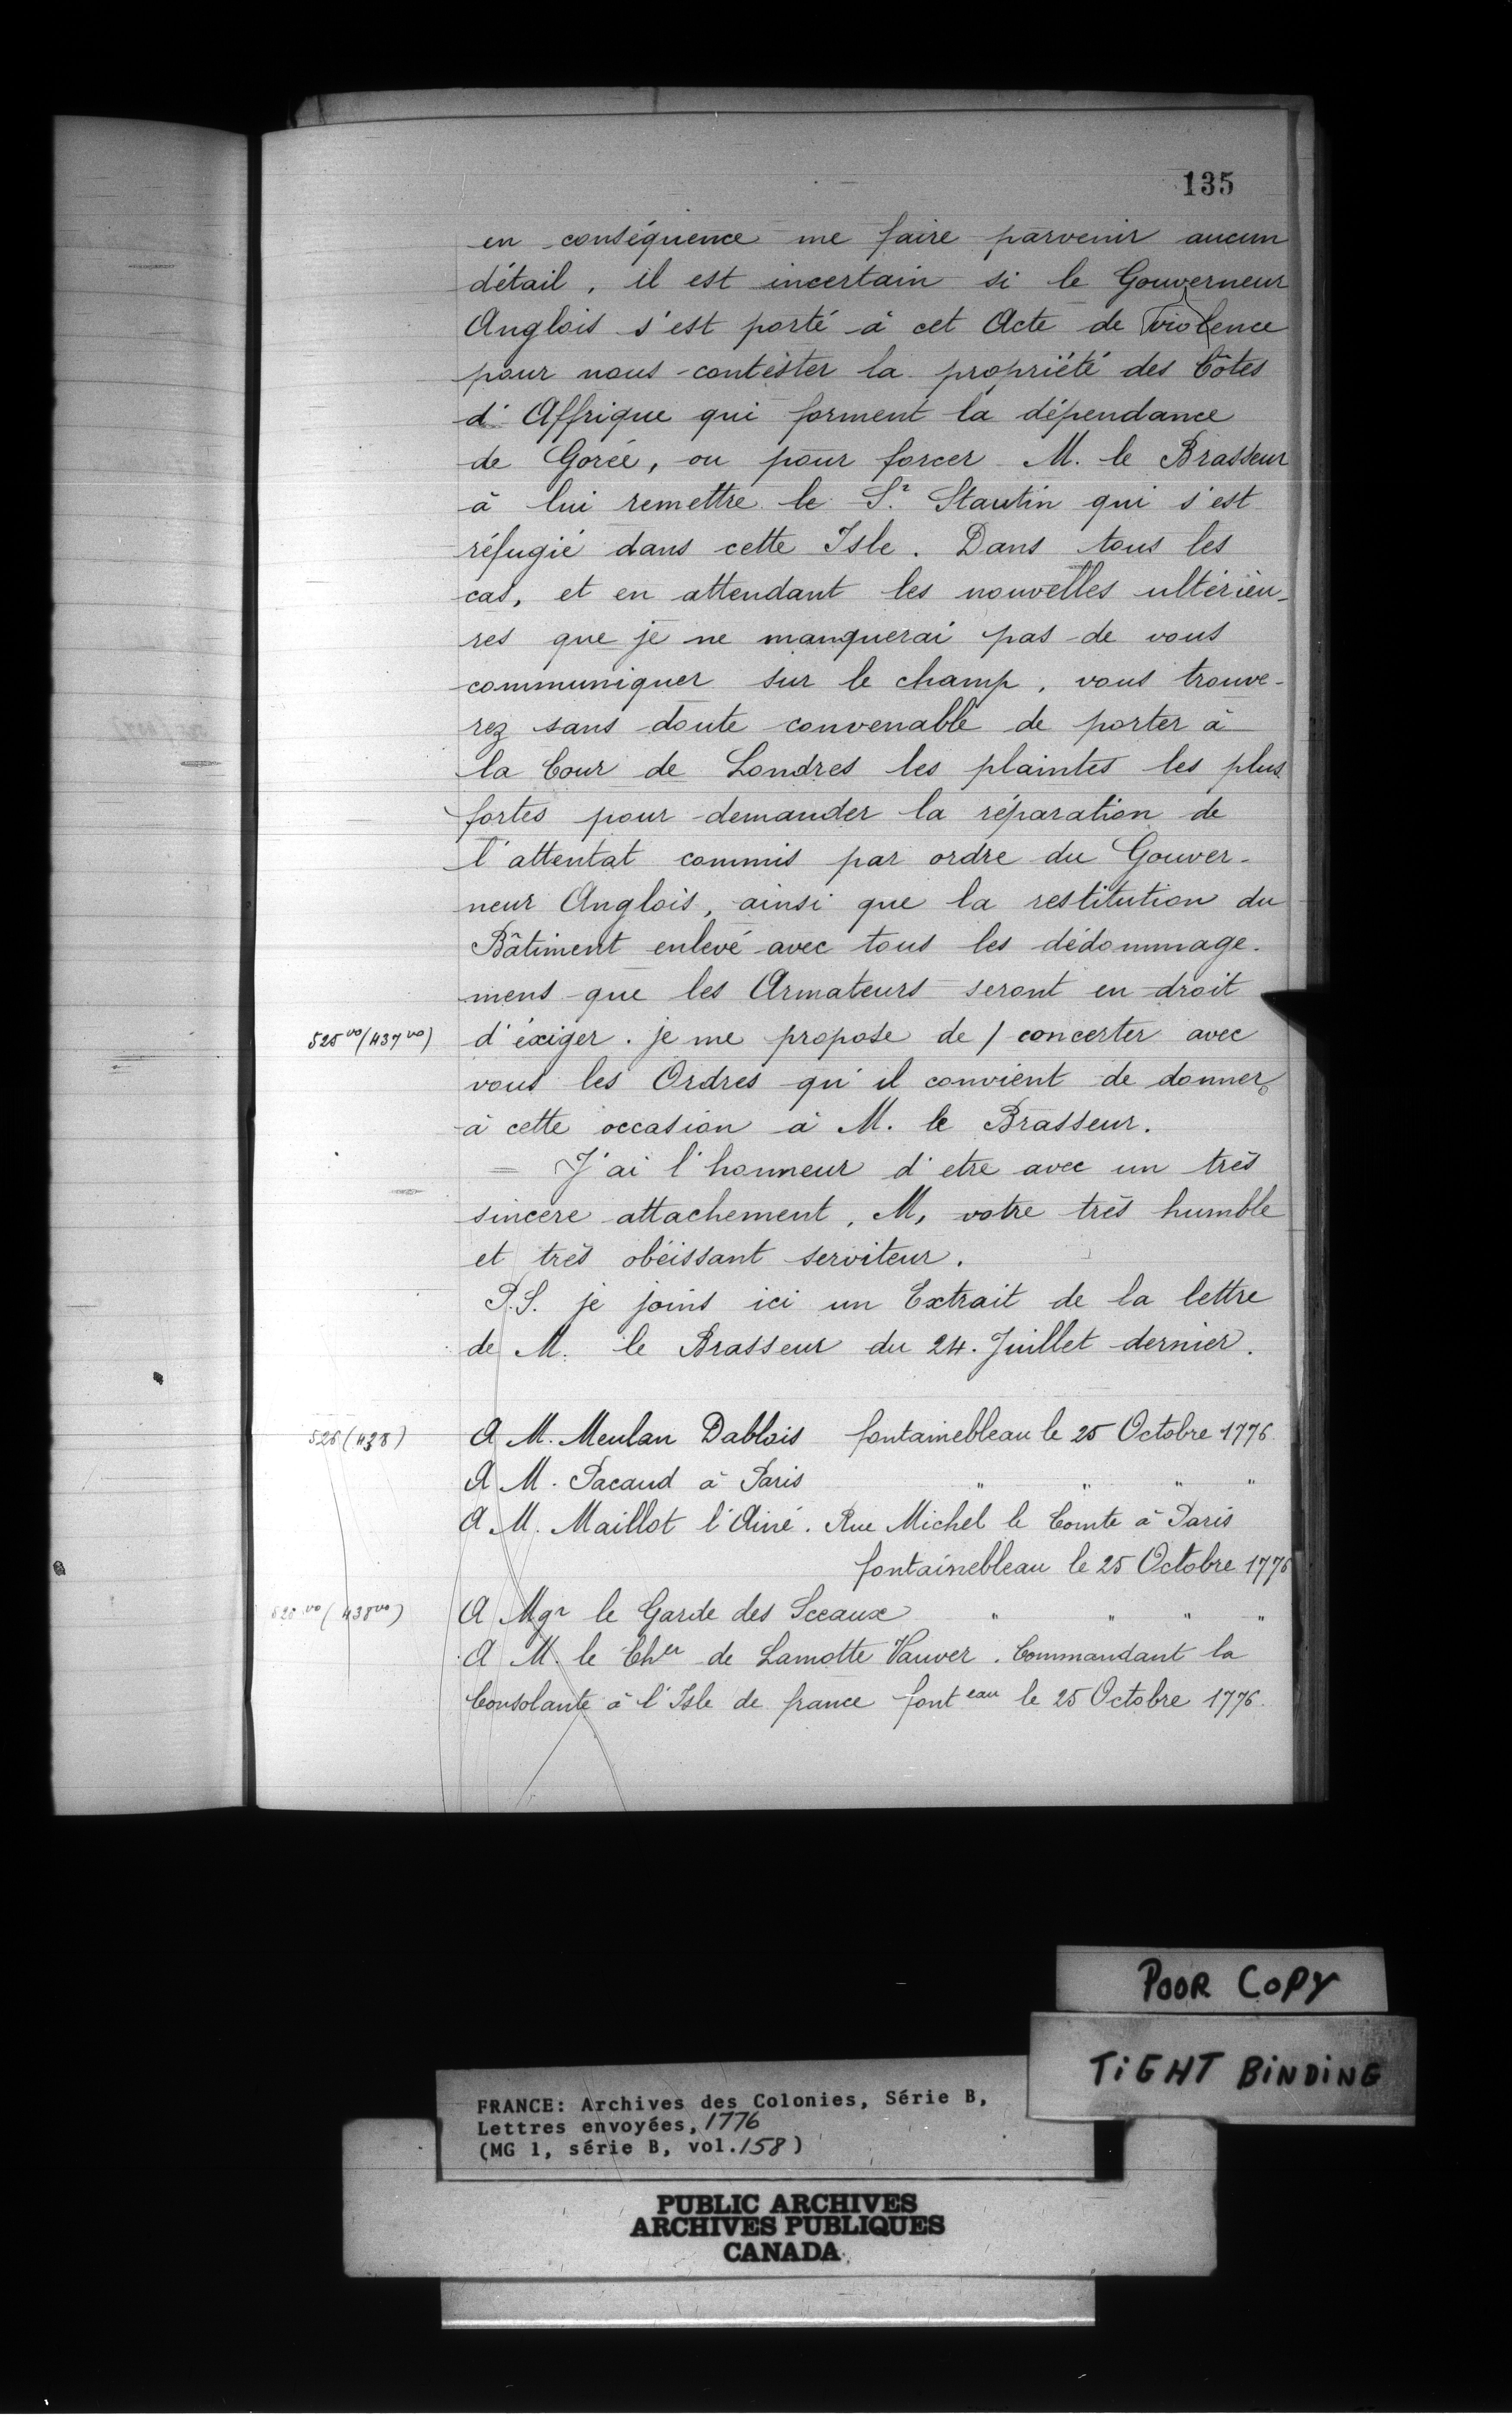 135
en conséquence me faire parvenir aucun
détail, il est incertain si le Gouverneur
Anglois s'est porté à cet Acte de violence
pour nous contester la propriété des Côtes
d'Affrique qui forment la dépendance
de Gorée, ou pour forcer M. le Brasseur
à lui remettre le Sr. Stautin qui s'est
réfugié dans cette Isle. Dans tous les
cas, et en attendant les nouvelles ultérieu-
res que je ne manquerai pas de vous
communiquer sur le champ, vous trouve-
rez sans doute convenable de porter à
la Cour de Londres les plaintes les plus
fortes pour demander la réparation de
l'attentat commis par ordre du Gouver-
neur Anglois, ainsi que la restitution du
Bâtiment enlevé avec tous les dédommage-
mens que les Armateurs seront en droit
525 vo (437 vo) d'éxiger. je me propose de / concerter avec
vous les Ordres qu'il convient de donner
à cette occasion à M. le Brasseur.
= J'ai l'honneur d'etre avec un très
sincere attachement, M, votre très humble
et très obéissant serviteur.
P.S. je joins ici un Extrait de la lettre
de M. le Brasseur du 24. Juillet dernier.
526 (438) A M. Meulan Dablois fontainebleau le 25 Octobre 1776.
A M. Pacaud à Paris " " " "
A M. Maillot l'Ainé. Rue Michel le Comte à Paris
fontainebleau le 25 Octobre 1776
(438 vo) A Mgr le Garde des Sceaux " " " "
A M. le Cher de Lamotte Vauver. Commandant la
Consolante à l'Isle de france font eau le 25 Octobre 1776.
POOR COPY
TIGHT BINDING
FRANCE: Archives des Colonies, Série B,
Lettres envoyées, 1776
(MG 1, série B, vol. 158)
PUBLIC ARCHIVES
ARCHIVES PUBLIQUES
CANADA